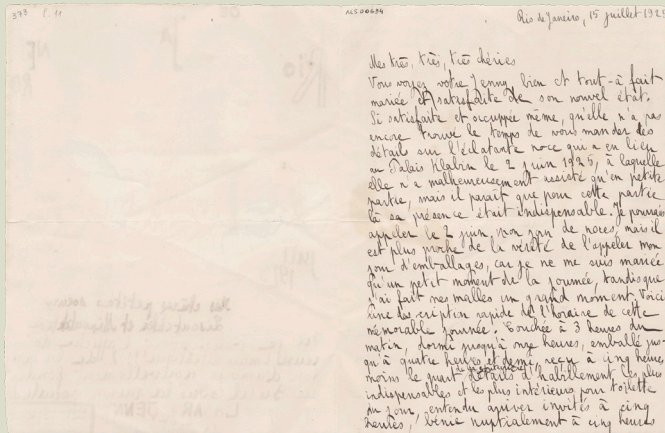 373 P. 11
Rio de Janeiro, 15 juillet 192
Mes très, très, très chéries
Vous voyez votre Jenny bien et tout-à fait
mariée et satisfaite de son nouvel état.
Si satisfaite et occuppée même, qu'elle n'a pas
encore trouvé le temps de vous mander des
détails sur l'éclatante noce qui a eu lieu
au Palais Klabin le 2 juin 1925, à laquelle
elle n'a malheureusement assisté qu'en petite
partie, mais il paraît que pour cette partie
là sa présence était indispensable. Je pourrais
appeler le 2 juin, mon jour de noces, mais il
est plus proche de la vérité de l'appeler mon
jour d'emballages, car je ne me suis mariée
qu'un petit moment de la journée, tandis que
j'ai fait mes malles un grand moment. Voici
une description rapide de l'horaire de cette
mémorable journée. Couchée à 3 heures du
matin, dormi jusqu'à onze heures, emballé jus-
qu'à quatre heures et demi, reçu à cinq heures
moins le quart détails d'habillement les plus
indispensables et les plus intérieurs pour toilette
du jour, entendu arriver invités à cinq
heures, bénie nuptialement à cinq heures